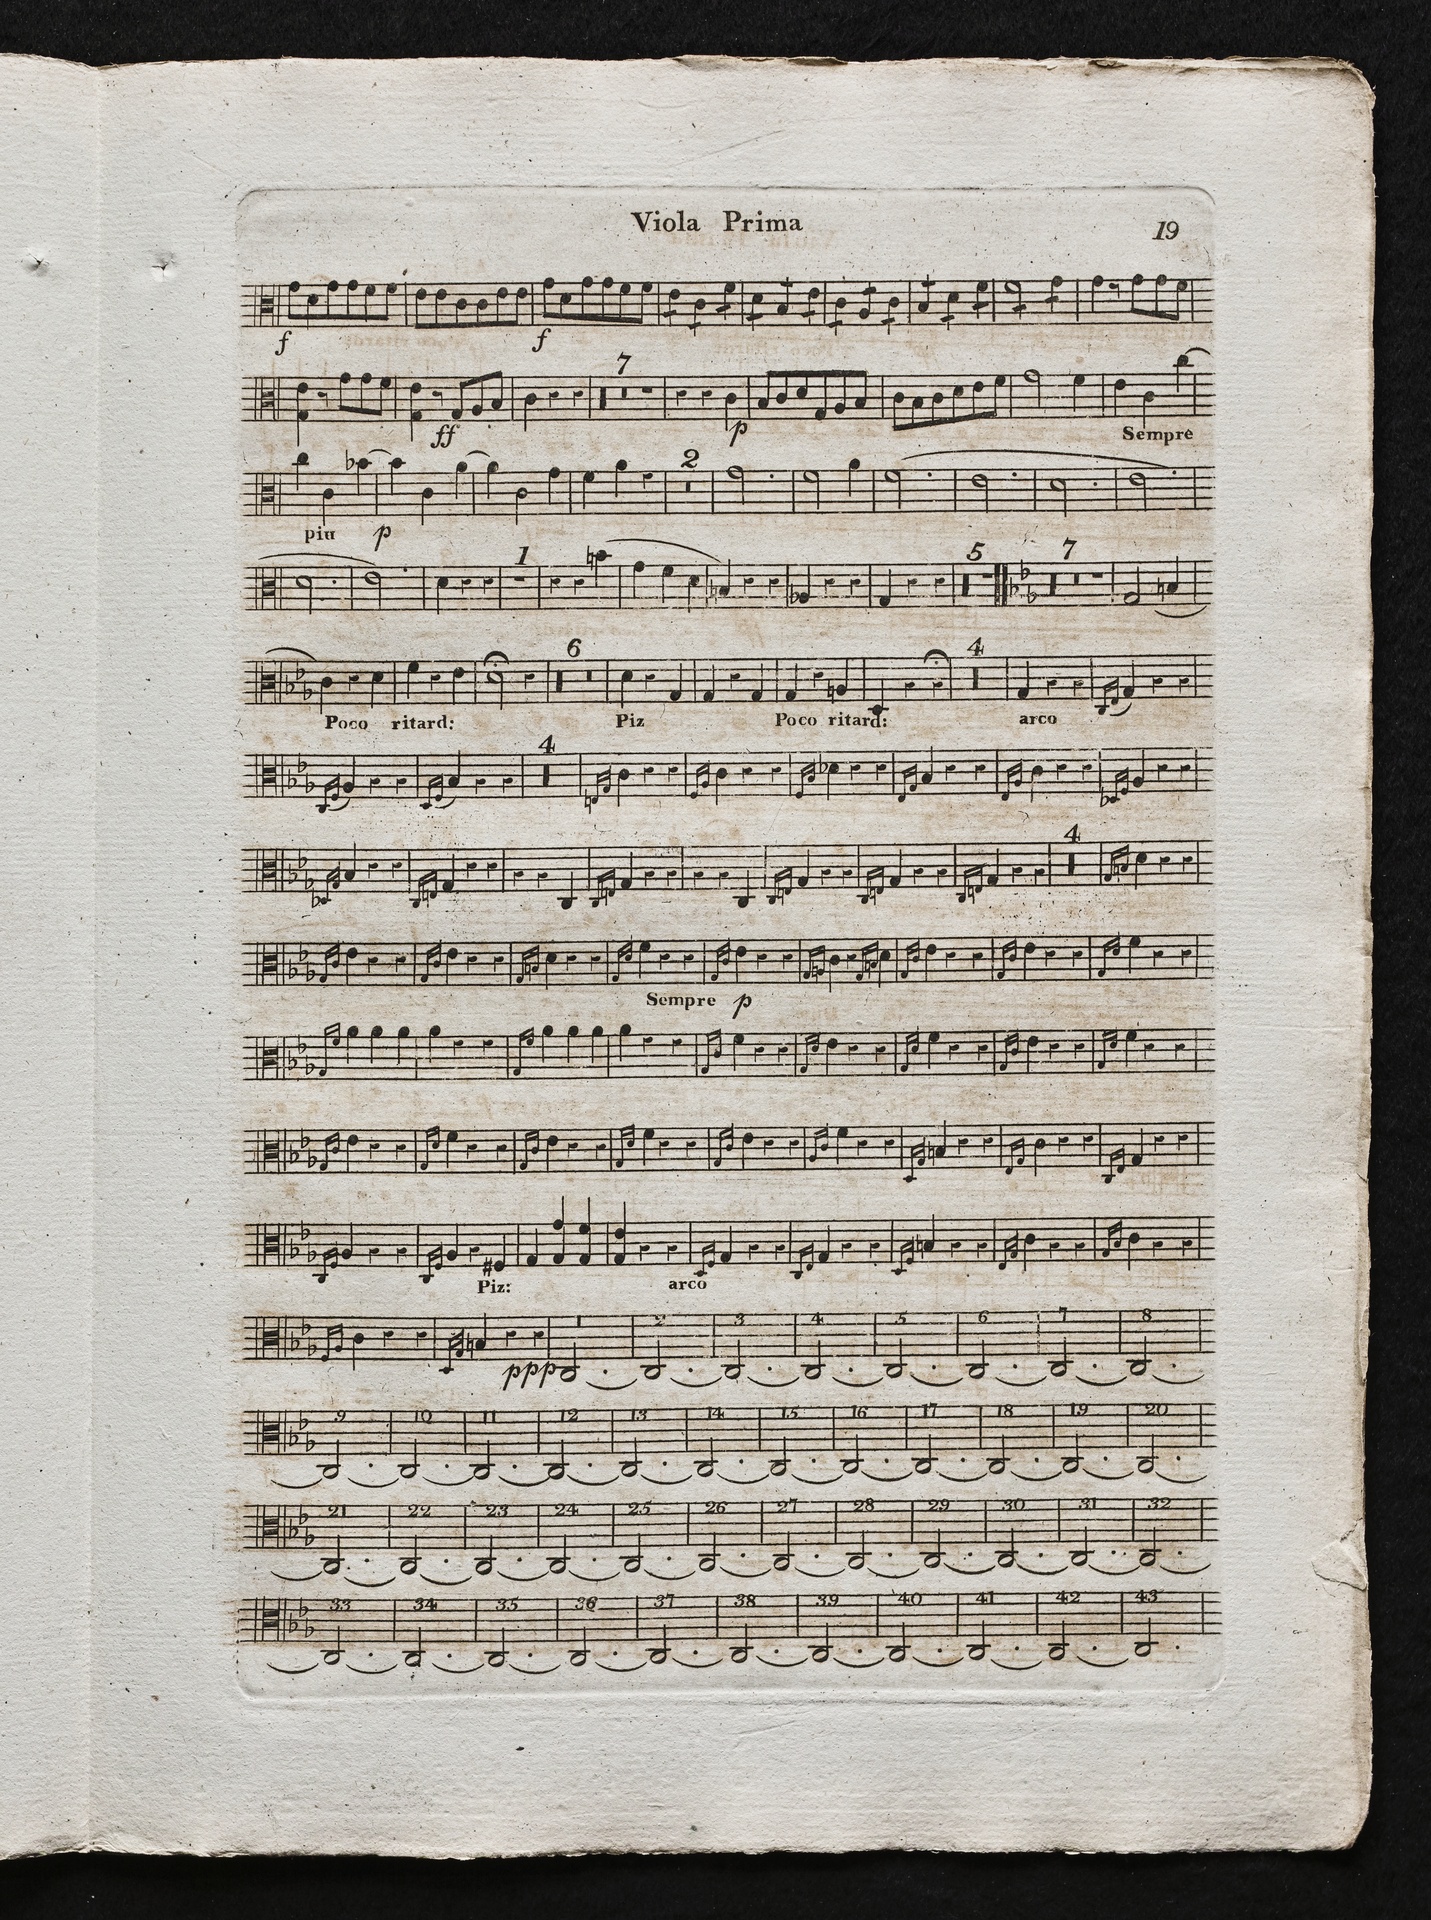 Viola Prima
19
f f
7
ff p Sempre
2
piu p
1 5 7
6 4
Poco ritard: Piz Poco ritard: arco
4
4
Sempre p
Piz: arco
1 2 3 4 5 6 7 8
ppp
9 10 11 12 13 14 15 16 17 18 19 20
21 22 23 24 25 26 27 28 29 30 31 32
33 34 35 36 37 38 39 40 41 42 43